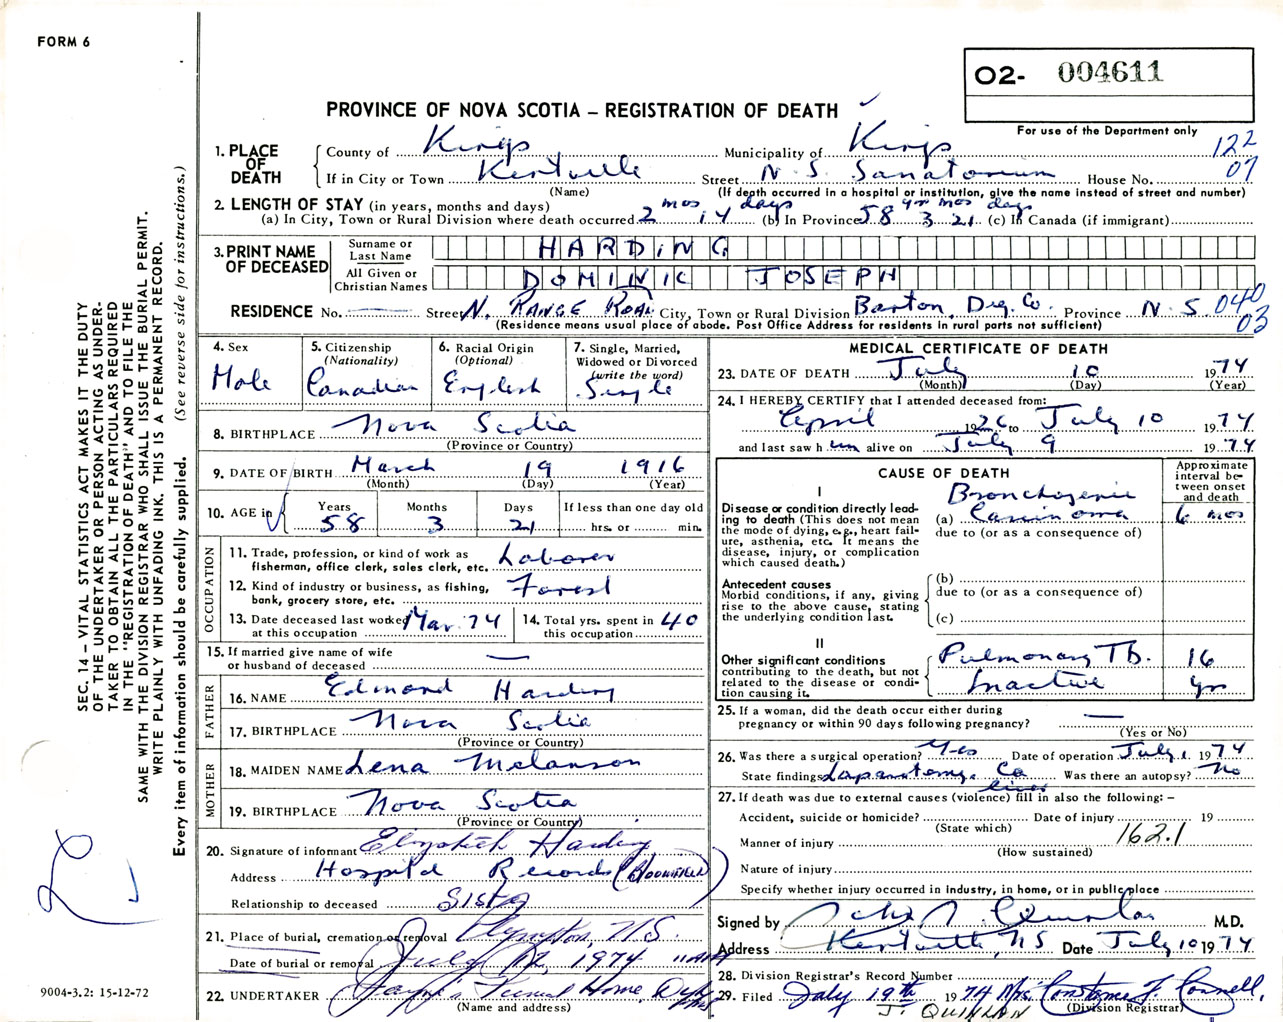 FORM 6
O2- 004611
PROVINCE OF NOVA SCOTIA – REGISTRATION OF DEATH
For use of the Department only
122
07
1. PLACE OF DEATH
County of Kings Municipality of Kings
If in City or Town Kentville Street N. S. Sanatorium House No.
(Name) (If death occurred in a hospital or institution, give the name instead of street and number)
2. LENGTH OF STAY (in years, months and days)
(a) In City, Town or Rural Division where death occurred 2 mos 14 days (b) In Province 58 yrs 3 mos 21 days (c) In Canada (if immigrant)
3. PRINT NAME OF DECEASED
Surname or Last Name HARDING
All Given or Christian Names DOMINIC JOSEPH
RESIDENCE No. — Street N. RANGE ROAD City, Town or Rural Division Barton, Dig. Co. Province N. S. 040
03
(Residence means usual place of abode. Post Office Address for residents in rural parts not sufficient)
4. Sex
Male
5. Citizenship
(Nationality)
Canadian
6. Racial Origin
(Optional)
English
7. Single, Married,
Widowed or Divorced
(write the word)
Single
8. BIRTHPLACE Nova Scotia
(Province or Country)
9. DATE OF BIRTH March 19 1916
(Month) (Day) (Year)
10. AGE in
Years Months Days If less than one day old
58 3 21 hrs. or min.
OCCUPATION
11. Trade, profession, or kind of work as
fisherman, office clerk, sales clerk, etc. Laborer
12. Kind of industry or business, as fishing,
bank, grocery store, etc. Forest
13. Date deceased last worked
at this occupation Mar. 74
14. Total yrs. spent in
this occupation 40
15. If married give name of wife
or husband of deceased —
FATHER
16. NAME Edmond Harding
17. BIRTHPLACE Nova Scotia
(Province or Country)
MOTHER
18. MAIDEN NAME Lena Melanson
19. BIRTHPLACE Nova Scotia
(Province or Country)
20. Signature of informant Elizabeth Harding
Address Hospital Records (Bloomfield)
Relationship to deceased Sister
21. Place of burial, cremation or removal Plympton, N.S.
Date of burial or removal July 12, 1974 11 AM
22. UNDERTAKER Funeral Home,
(Name and address)
MEDICAL CERTIFICATE OF DEATH
23. DATE OF DEATH July 10 1974
(Month) (Day) (Year)
24. I HEREBY CERTIFY that I attended deceased from:
April 26 19 to July 10 1974
and last saw him alive on July 9 1974
CAUSE OF DEATH
Approximate
interval be-
tween onset
and death
I
Disease or condition directly lead-
ing to death (This does not mean
the mode of dying, e.g., heart fail-
ure, asthenia, etc. It means the
disease, injury, or complication
which caused death.)
Bronchogenic
(a) Carcinoma 6 mos
due to (or as a consequence of)
Antecedent causes
Morbid conditions, if any, giving
rise to the above cause, stating
the underlying condition last.
(b)
due to (or as a consequence of)
(c)
II
Other significant conditions
contributing to the death, but not
related to the disease or condi-
tion causing it.
Pulmonary TB. 16
Inactive yrs
25. If a woman, did the death occur either during
pregnancy or within 90 days following pregnancy? —
(Yes or No)
26. Was there a surgical operation? Yes Date of operation July 1 1974
State findings Laparotomy. Ca liver Was there an autopsy? No
27. If death was due to external causes (violence) fill in also the following: –
Accident, suicide or homicide? Date of injury 19
(State which)
162.1
Manner of injury
(How sustained)
Nature of injury
Specify whether injury occurred in industry, in home, or in public place
Signed by M.D.
Address Kentville NS Date July 10 1974
28. Division Registrar's Record Number
29. Filed July 19th 1974 Mrs. Constance F. Connell,
(Division Registrar)
J. QUINLAN
SEC. 14 – VITAL STATISTICS ACT MAKES IT THE DUTY
OF THE UNDERTAKER OR PERSON ACTING AS UNDER-
TAKER TO OBTAIN ALL THE PARTICULARS REQUIRED
IN THE "REGISTRATION OF DEATH" AND TO FILE THE
SAME WITH THE DIVISION REGISTRAR WHO SHALL ISSUE THE BURIAL PERMIT.
WRITE PLAINLY WITH UNFADING INK. THIS IS A PERMANENT RECORD.
Every item of information should be carefully supplied. (See reverse side for instructions.)
9004-3.2: 15-12-72